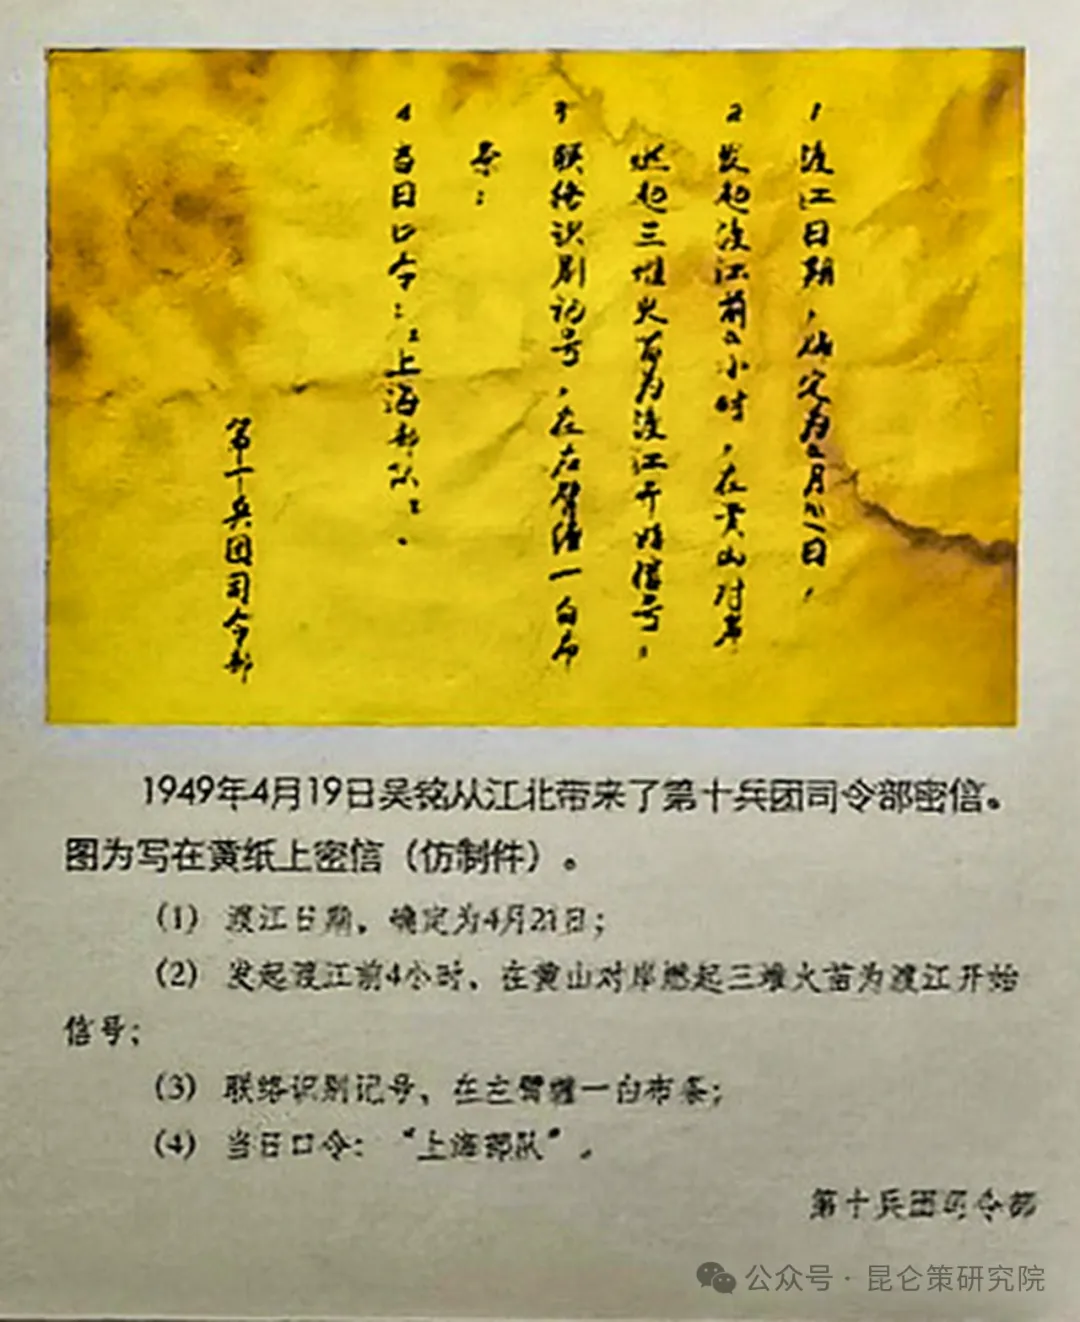 1 渡江日期,确定为4月21日,
2 发起渡江前4小时,在黄山对岸
燃起三堆火苗为渡江开始信号:
3 联络识别记号,在右臂缠一白布
条:
4 当日口令:"上海部队"。
第十兵团司令部
1949年4月19日吴铭从江北带来了第十兵团司令部密信。
图为写在黄纸上密信(仿制件)。
(1) 渡江日期,确定为4月21日;
(2) 发起渡江前4小时,在黄山对岸燃起三堆火苗为渡江开始
信号;
(3) 联络识别记号,在左臂缠一白布条;
(4) 当日口令:“上海部队”。
第十兵团司令部
公众号·昆仑策研究院